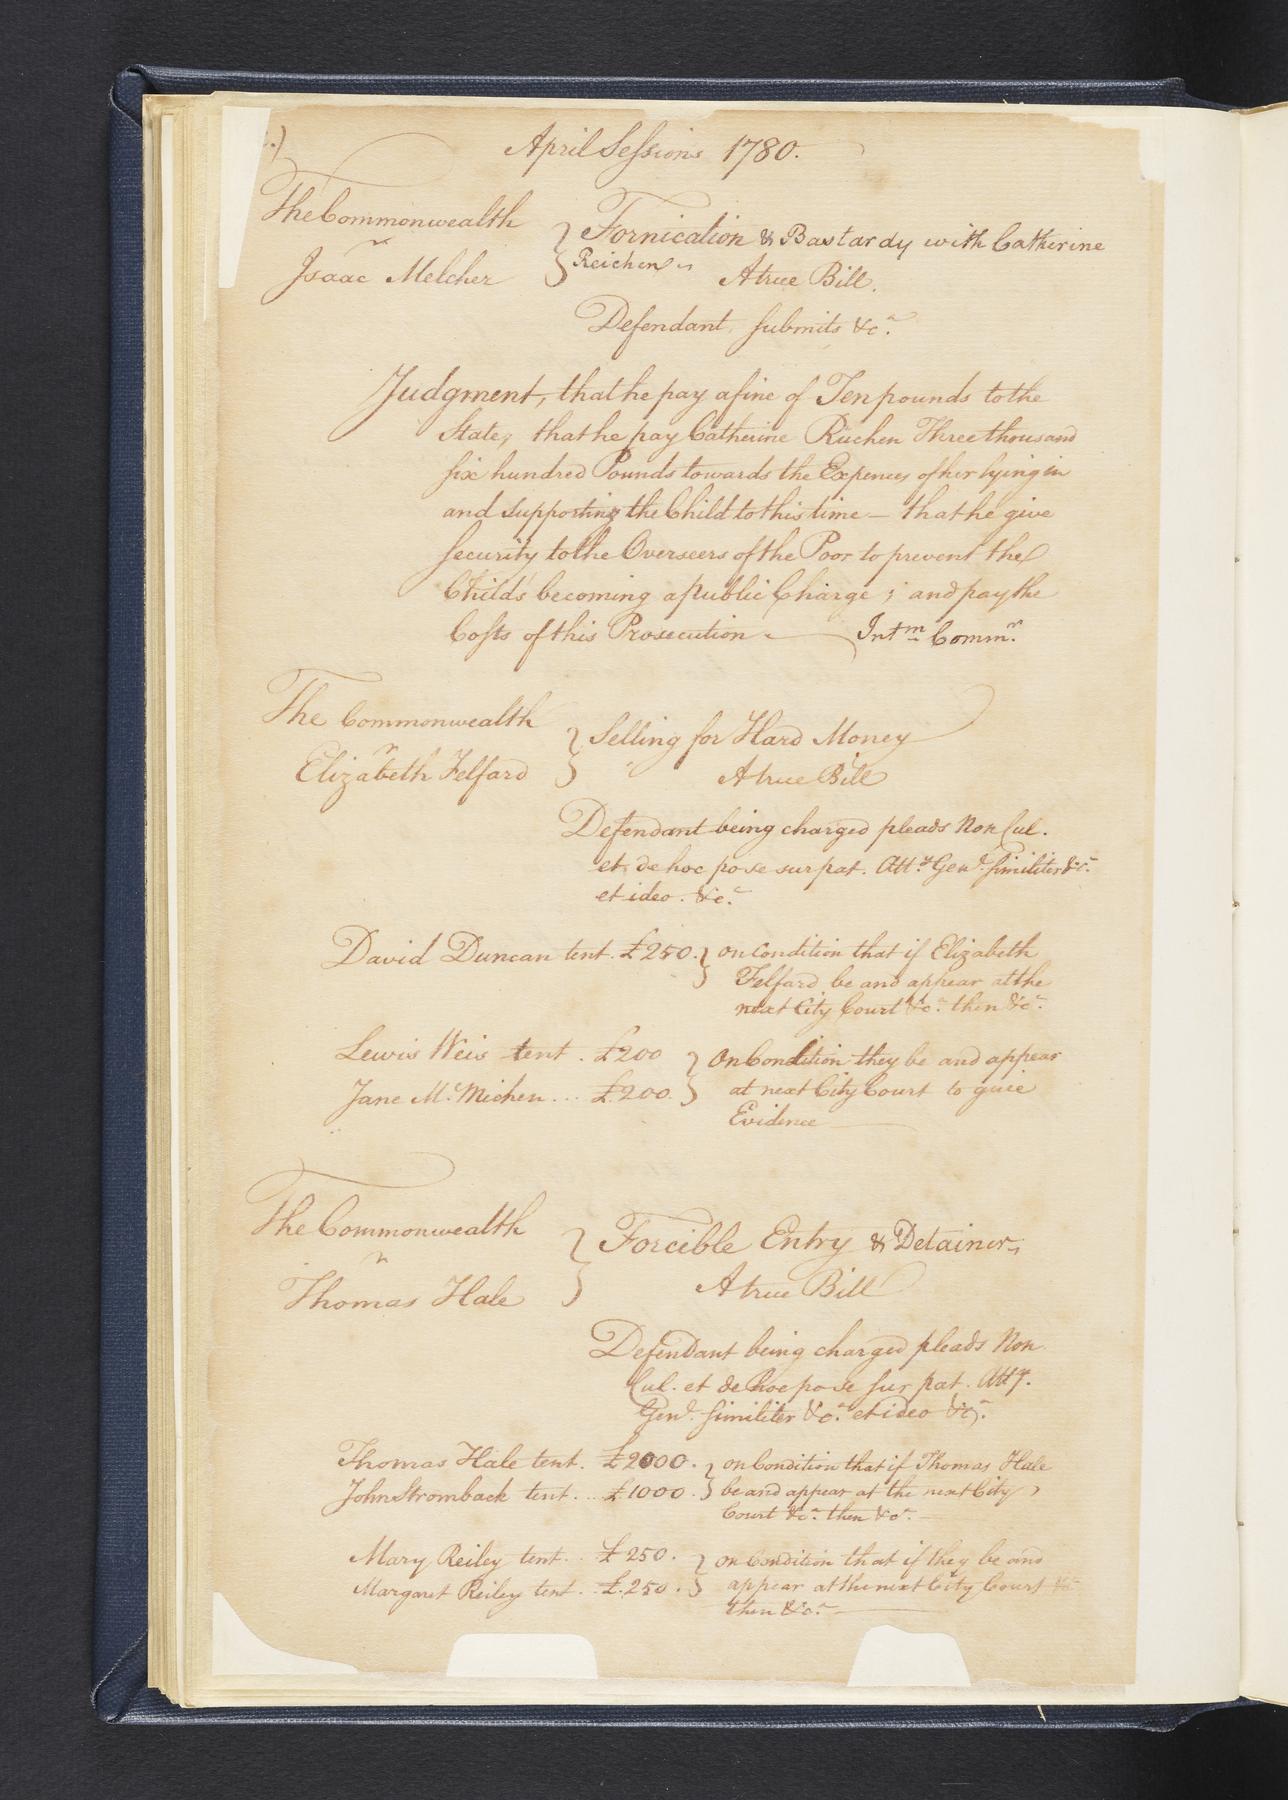 April Sessions 1780.
The Commonwealth
v
Isaac Melcher
Fornication & Bastardy with Catherine
Reichen
A true Bill.
Defendant submits &ca.
Judgment, that he pay a fine of Ten pounds to the
State, that he pay Catherine Riechen Three thousand
six hundred Pounds towards the Expences of her lying in
and supporting the Child to this time — that he give
security to the Overseers of the Poor to prevent the
Child's becoming a public Charge; and pay the
Costs of this Prosecution — Intm Commr.
The Commonwealth
v
Elizabeth Felfard
Selling for Hard Money
A true Bill
Defendant being charged pleads Non Cul.
et de hoc pose sur pat. Atty Genl. similiter &ca.
et ideo. &ca.
David Duncan tent. £250. } on Condition that if Elizabeth
Felfard be and appear at the
next City Court &ca. then &ca.
Lewis Weis tent. £200
Jane McMichen ... £200.
On Condition they be and appear
at next City Court to give
Evidence
The Commonwealth
v
Thomas Hale
Forcible Entry & Detainer
A true Bill
Defendant being charged pleads Non
Cul. et de hoc pose sur pat. Atty.
Genl. similiter &ca. et ideo &ca.
Thomas Hale tent. £2000.
John Stromback tent. .. £1000.
on Condition that if Thomas Hale
be and appear at the next City
Court &ca. then &ca. —
Mary Reiley tent. . £250.
Margaret Reiley tent. . £.250.
on Condition that if they be and
appear at the next City Court &ca
then &ca. —